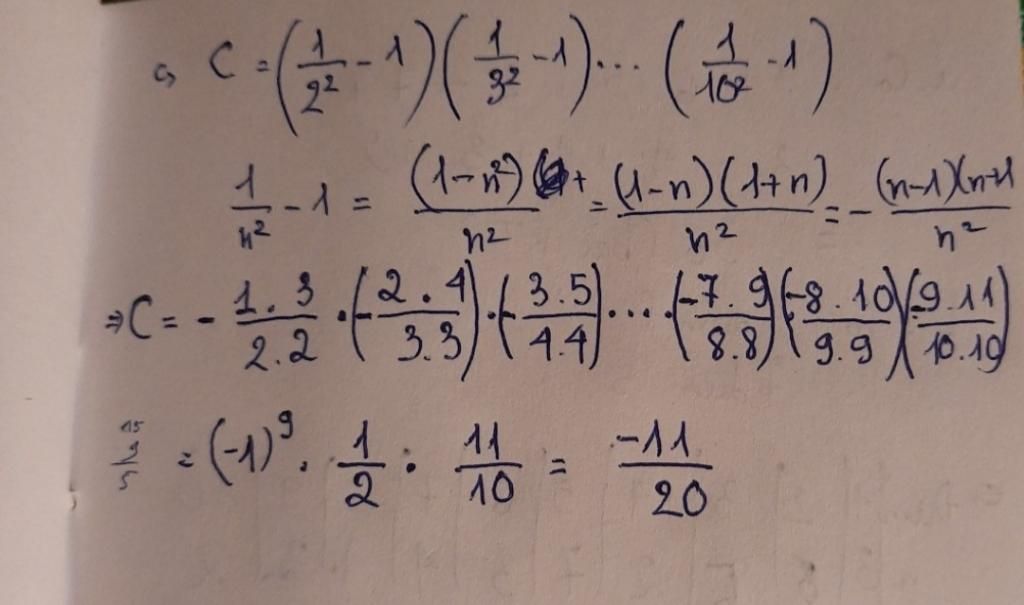 c, C = (1/2² - 1)(1/3² - 1)... (1/10² - 1)
1/n² - 1 = (1-n²)/n² = (1-n)(1+n)/n² = - (n-1)(n+1/n²
⇒ C = - 1.3/2.2 . (- 2.4/3.3) . (- 3.5/4.4) ... . (- 7.9/8.8)(- 8.10/9.9)(- 9.11/10.10)
= (-1)⁹ . 1/2 . 11/10 = -11/20